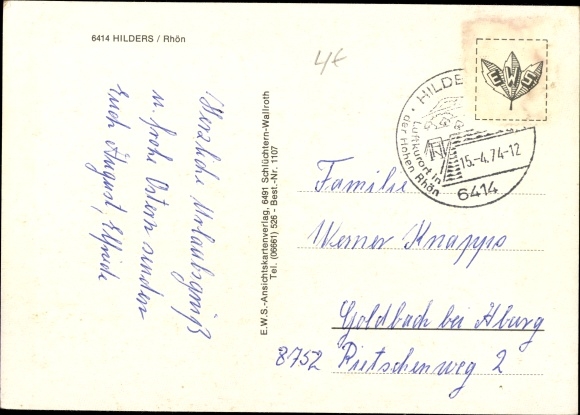 6414 HILDERS / Rhön
4€
Herzliche Urlaubsgrüß
u. frohe Ostern senden
Euch August, Elfriede
E.W.S.-Ansichtskartenverlag, 6491 Schlüchtern-Wallroth
Tel. (06661) 526 - Best.-Nr. 1107
EWS
HILDE
Luftkurort in
der Hohen Rhön
15.-4.74-12
6414
Familie
Werner Knapps
Goldbach bei Aburg
8752 Rietschenweg 2